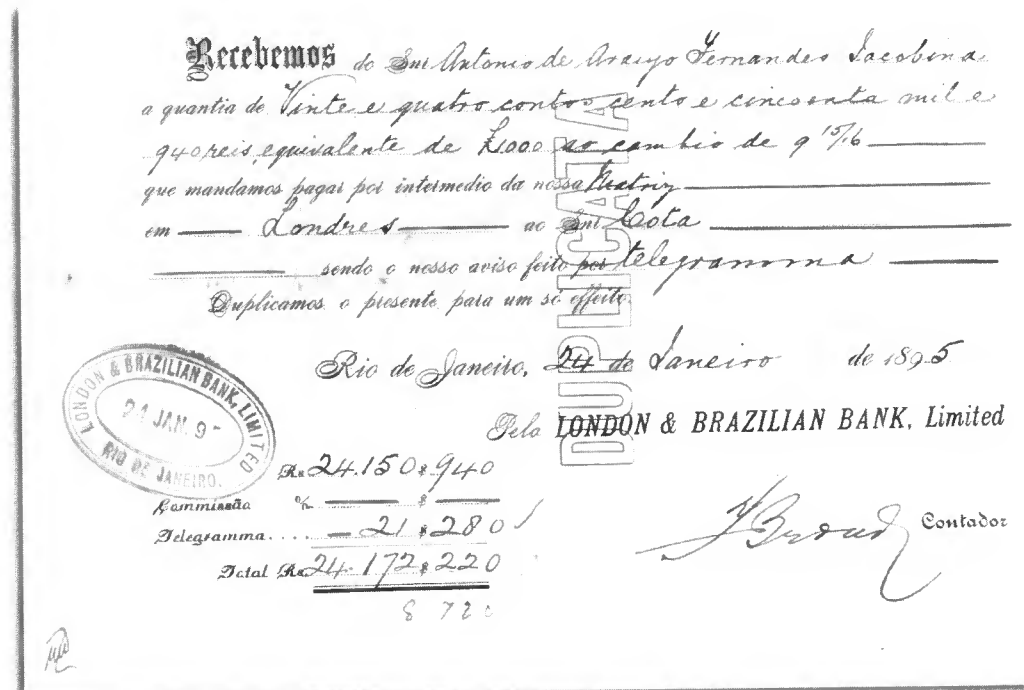 Recebemos do Snr Antonio de Araujo Fernandes Jacobina
a quantia de Vinte e quatro contos cento e cincoenta mil e
940 reis, equivalente de £1000 ao cambio de 9 15/16
que mandamos pagar por intermedio da nossa Matriz
em Londres ao Snr Cota
sendo o nosso aviso feito por telegramma
Duplicamos o presente para um só effeito
DUPLICATA
Rio de Janeiro, 24 de Janeiro de 1895
LONDON & BRAZILIAN BANK, LIMITED
JAN. 9
RIO DE JANEIRO.
Pelo LONDON & BRAZILIAN BANK, Limited
Rs 24.150$940
Commissão % $
Telegramma.... 21$280
Contador
Total Rs 24.172$220
8 720